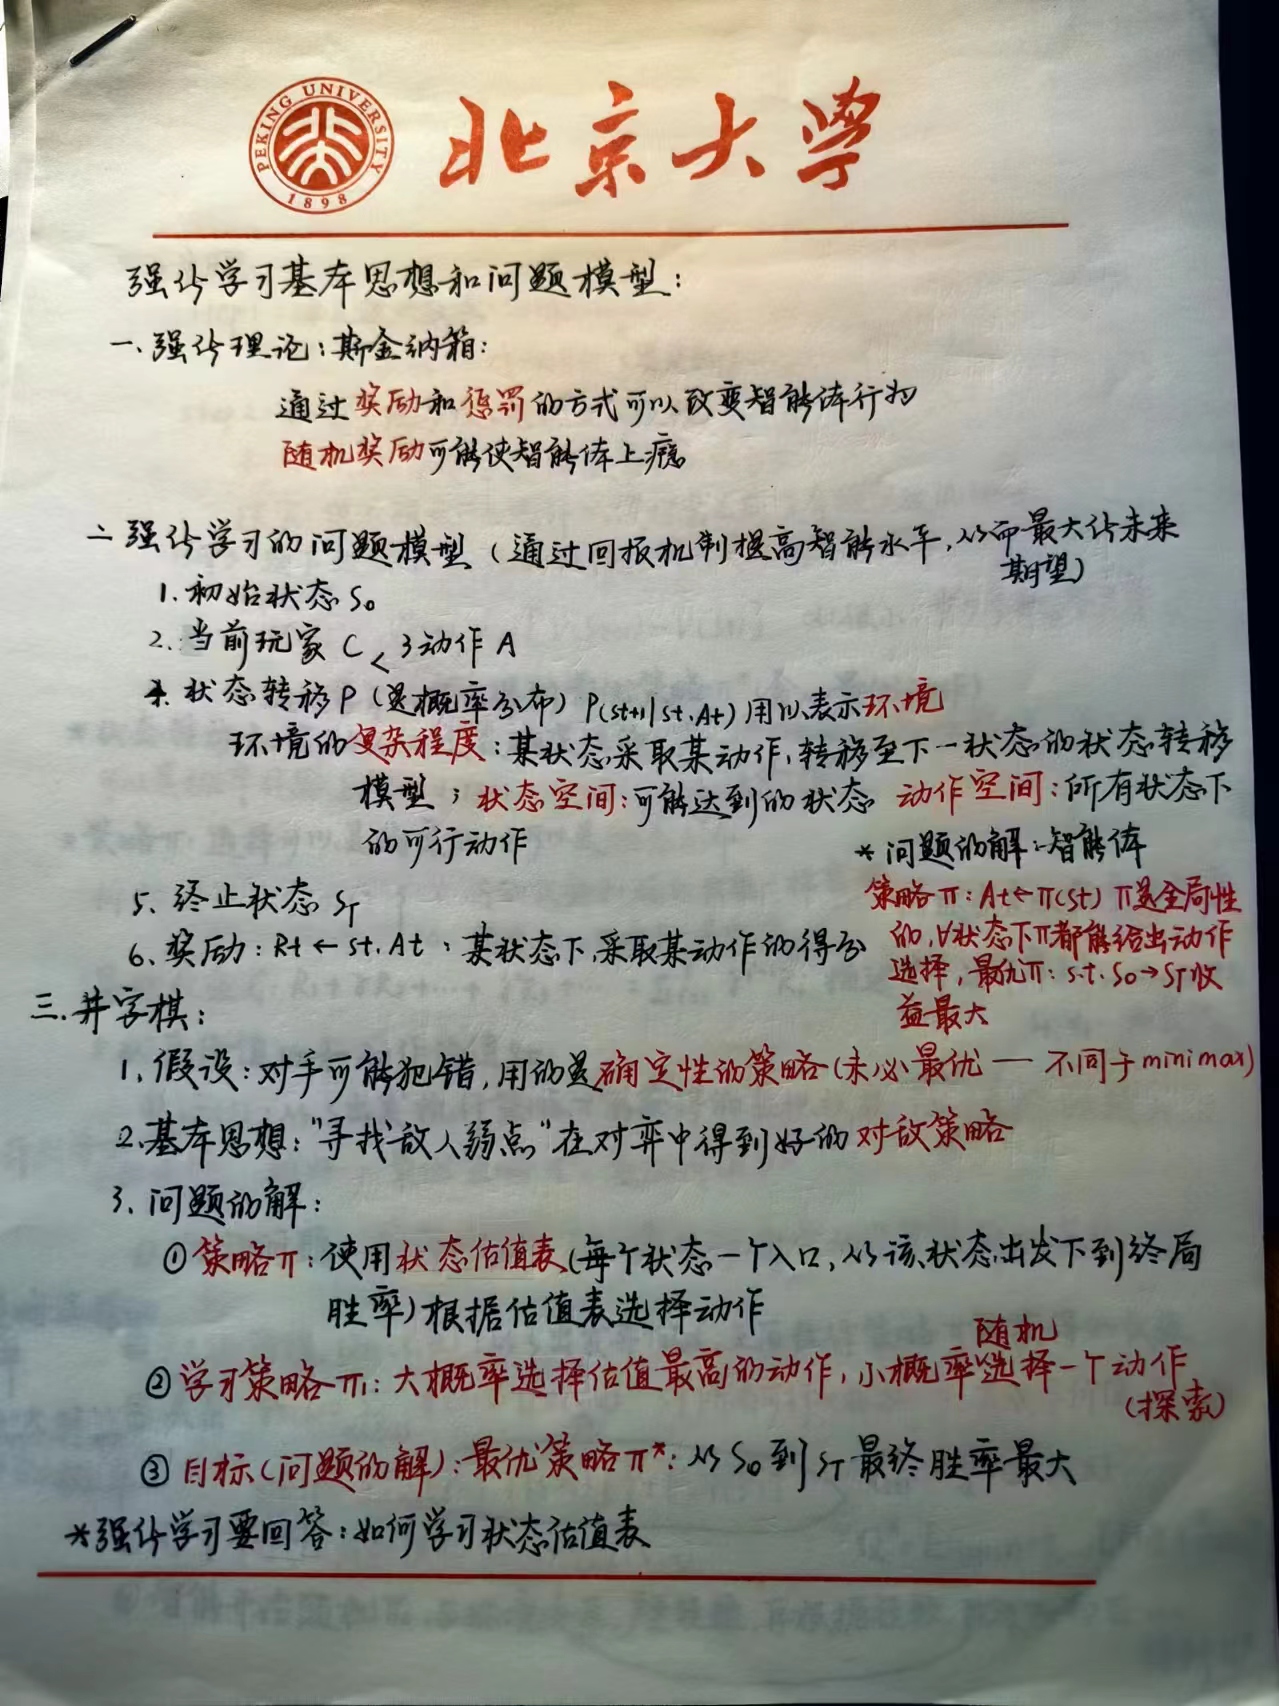 PEKING UNIVERSITY
1898
北京大学
强化学习基本思想和问题模型:
一、强化理论:斯金纳箱:
通过奖励和惩罚的方式可以改变智能体行为
随机奖励可能使智能体上瘾
二 强化学习的问题模型(通过回报机制提高智能水平,从而最大化未来
期望)
1. 初始状态 S0
2. 当前玩家 C < 3 动作 A
4. 状态转移 P (是概率分布) P(St+1|St, At) 用以表示环境
环境的复杂程度:某状态采取某动作,转移至下一状态的状态转移
模型; 状态空间:可能达到的状态 动作空间:所有状态下
的可行动作
5. 终止状态 ST
6. 奖励:Rt ← St, At :某状态下,采取某动作的得分
* 问题的解:智能体
策略 π: At ← π(St) π是全局性
的,∀状态下π都能给出动作
选择,最优π: s.t. S0 → ST 收
益最大
三. 井字棋:
1. 假设:对手可能犯错,用的是确定性的策略(未必最优 — 不同于 minimax)
2. 基本思想:"寻找敌人弱点"在对弈中得到好的对敌策略
3. 问题的解:
① 策略π:使用状态估值表(每个状态一个入口,从该状态出发下到终局
胜率)根据估值表选择动作
② 学习策略 π1: 大概率选择估值最高的动作,小概率随机选择一个动作
(探索)
③ 目标(问题的解):最优策略 π*:从 S0 到 ST 最终胜率最大
*强化学习要回答:如何学习状态估值表